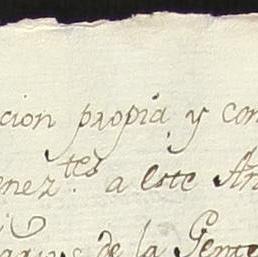 cion propia y con
enez.tes a este An
de la Gente